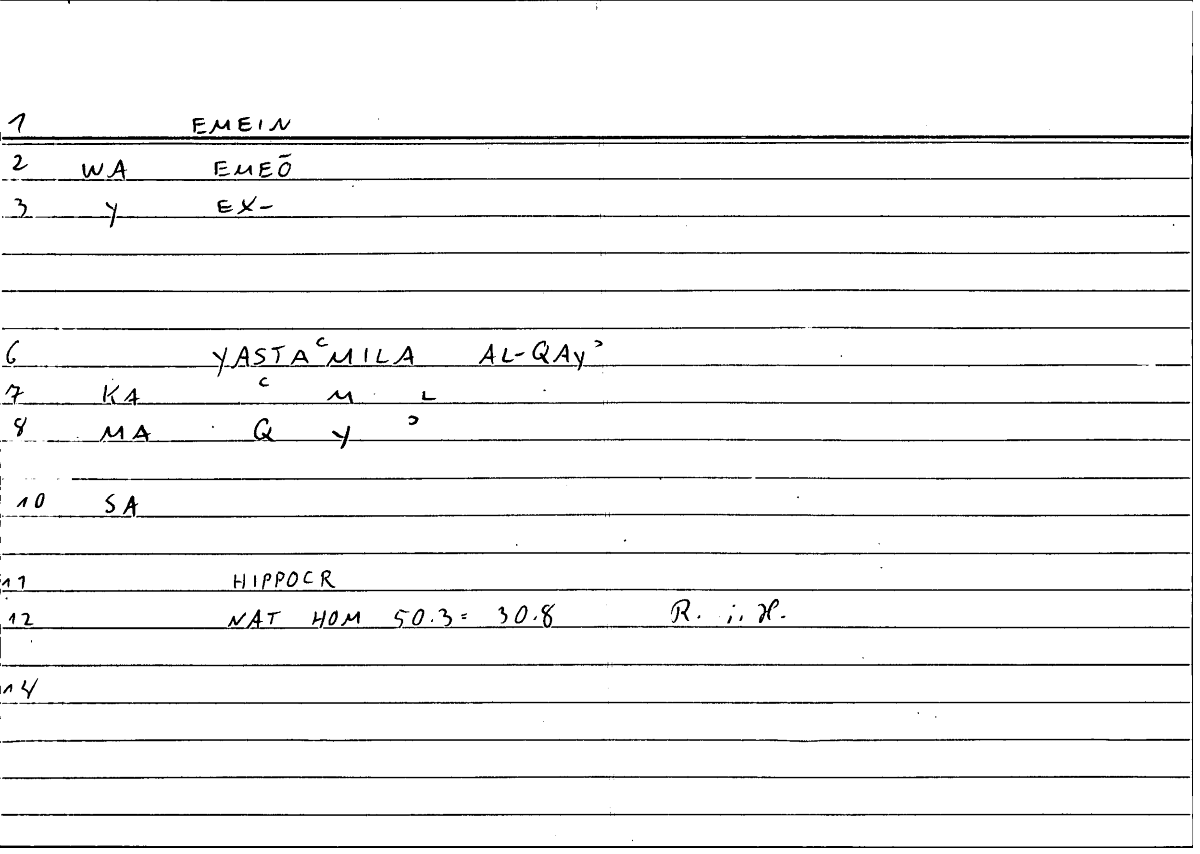 1 EMEIN
2 WA EMEŌ
3 Y EX-
6 YASTAʿMILA AL-QAYʾ
7 KA ʿ M L
8 MA Q Y ʾ
10 SA
11 HIPPOCR
12 NAT HOM 50.3 = 30.8 R. i. H.
14